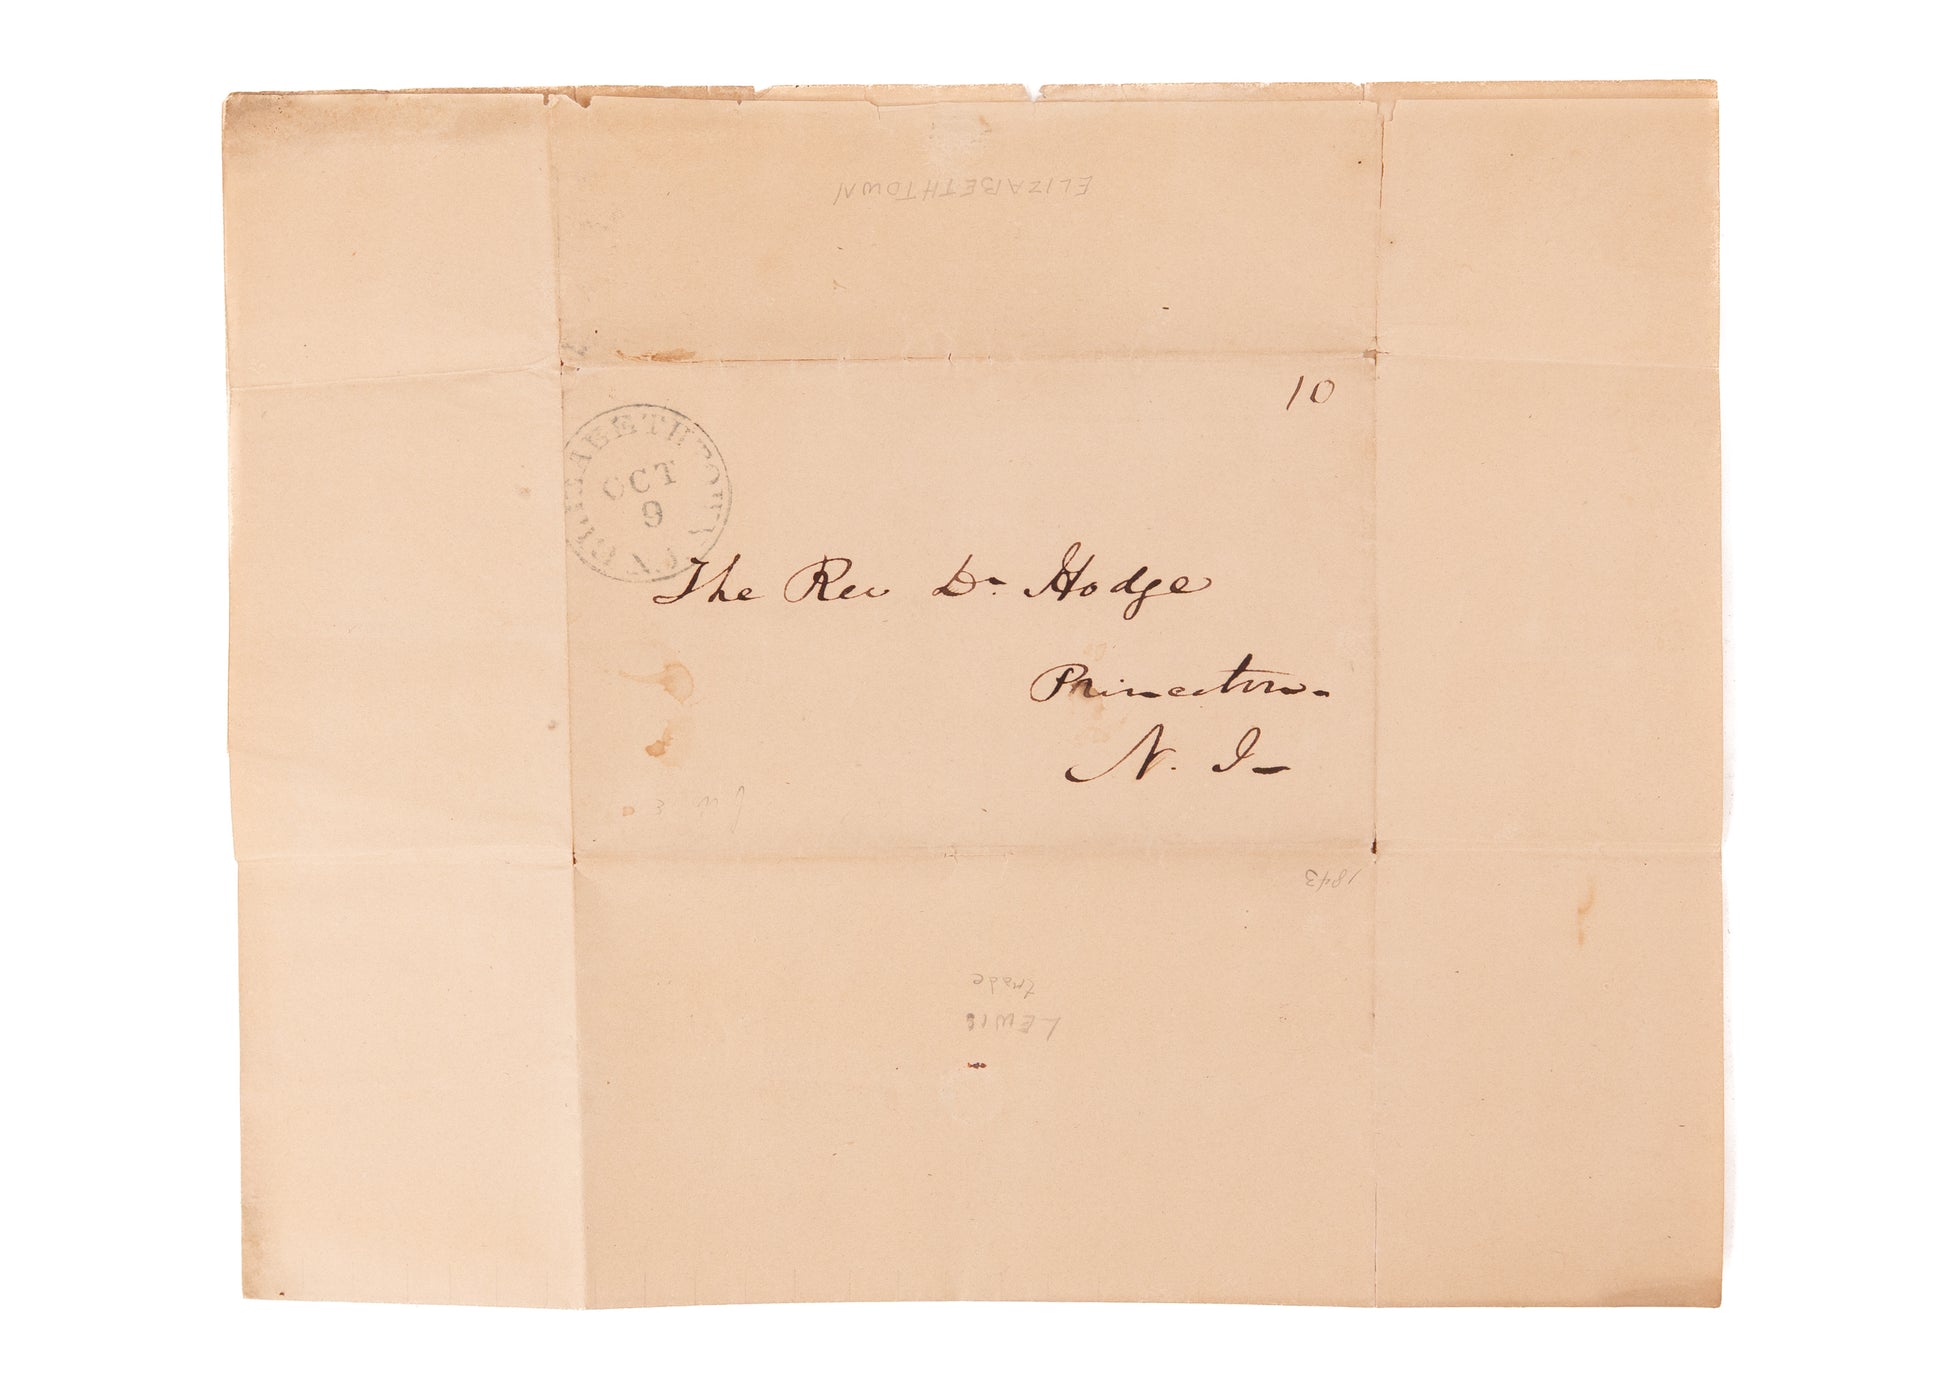 ELIZABETHTOWN
10
ELIZABETHTOWN N.J.
OCT
9
The Rev Dr. Hodge
Princeton
N. J
1843
trade
LEWIS